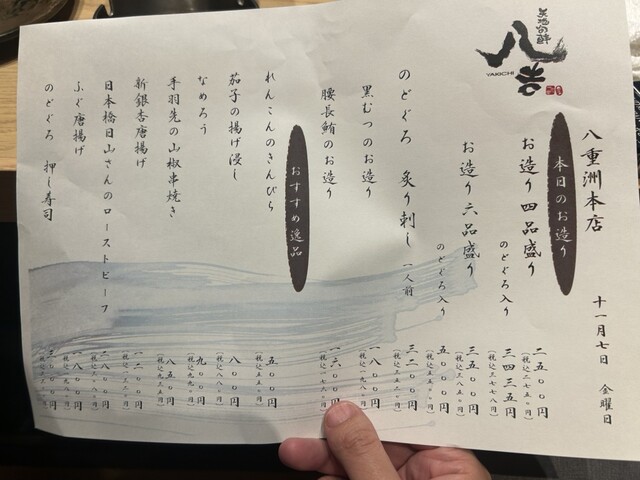 炙酒旬酔
八吉
YAKICHI
八重洲本店
十一月七日 金曜日
本日のお造り
お造り四品盛り 二五〇〇円
(税込二七五〇円)
のどぐろ入り 三四三五円
(税込三七七八円)
お造り六品盛り 三五〇〇円
(税込三八五〇円)
のどぐろ入り 五〇〇〇円
(税込五五〇〇円)
のどぐろ 炙り刺し 一人前 三二〇〇円
(税込三五二〇円)
黒むつのお造り 一八〇〇円
(税込一九八〇円)
腰長鮪のお造り 一六〇〇円
(税込一七六〇円)
おすすめ逸品
れんこんのきんぴら 五〇〇円
(税込五五〇円)
茄子の揚げ浸し 八〇〇円
(税込八八〇円)
なめろう 九〇〇円
(税込九九〇円)
手羽先の山椒串焼き 八五〇円
(税込九三五円)
新銀杏唐揚げ 一二〇〇円
(税込一三二〇円)
日本橋日山さんのローストビーフ 二八〇〇円
(税込三〇八〇円)
ふぐ唐揚げ 一八〇〇円
(税込一九八〇円)
のどぐろ 押し寿司